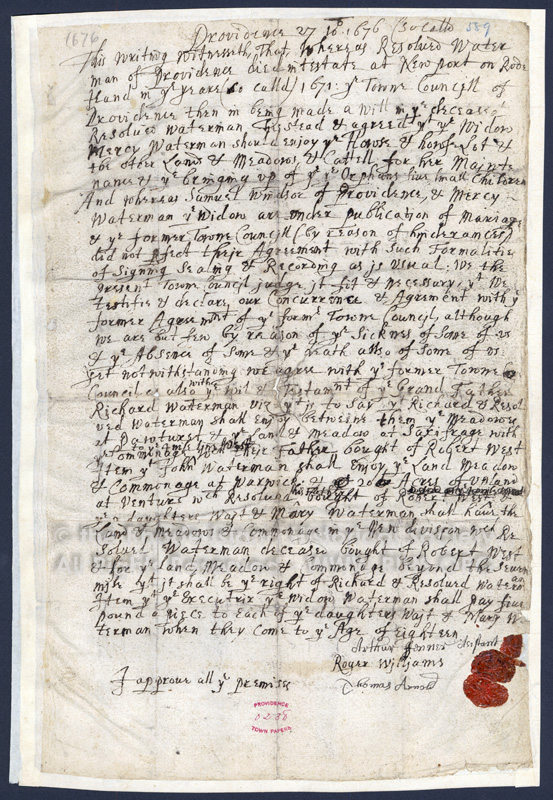 1676
589
Providence 27 10 1676 (so calld
This writing Witnesseth, That whereas Resolved Water
man of Providence died intestate at Newport on Rode
Iland in ye yeare (so calld) 1671 ye Towne Councill of
Providence then in being made a will in ye deceased
Resolved Waterman his stead & agreed yt ye Widow
Mercy Waterman should enjoy ye Howse & howse Lot &
the other Lands & Meadows, & Catell for her Mainte
nance & ye bringing up of ye Orphans five small Children
And whereas Samuel Windsor of Providence, & Mercy
Waterman ye Widow are under publication of Mariage
& ye former Towne Councill (by reason of hinderances)
did not pfect their Agreement with such Formalities
of Signing Sealing & Recording as is usual. We the
present Towne Council judge it fit & necessary yt we
testifie & declare our Concurrence & Agreement with ye
former Agreemt of ye former Towne Council although
we are but few by reason of ye Sicknes of some of us
& ye Absence of Some & ye death also of Some of us
yet notwithstanding we agree with ye former Towne
Council & also with ye wil & Testamt of ye Grand Father
Richard Waterman viz yt is to say yt Richard & Resol
ved Waterman shall enjoy betweene them ye Meadow
at & ye Land & Meadow at Saxifrage with
ye Commonage wch their Father bought of Robert West
Item yt John Waterman shall Enjoy ye Land Meadow
& Commonage at Warwick & ye 20 Acres of upland
at Venture wch Resolved bought of
ye 2 daughters Wayt & Mary Waterman shall have the
Land & Meadows & Commonage in ye New division wch Re
solved Waterman deceased bought of Robert West
& for ye land Meadow & Commonage beyond the seven
mile yt it shall be ye right of Richard & Resolved Waterman
Item yt ye Executrix ye Widow Waterman shall pay five
pound a piece to each of ye daughters Wayt & Mary Wa
terman when they come to ye Age of Eighteen
Arthur Fenner Asistant
Roger Williams
I approve all ye premises
Thomas Arnold
PROVIDENCE
0236
TOWN PAPERS